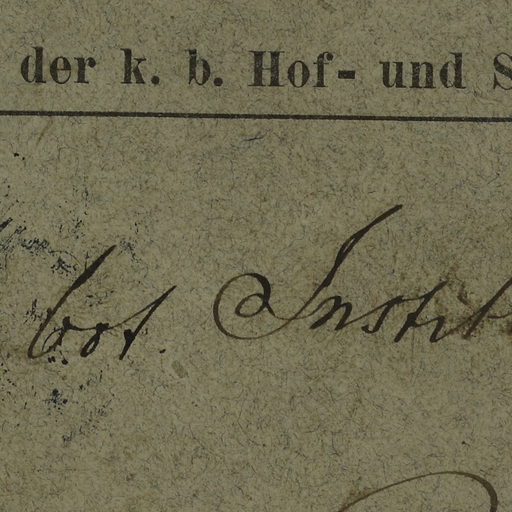 der k. b. Hof- und S
bot. Instit